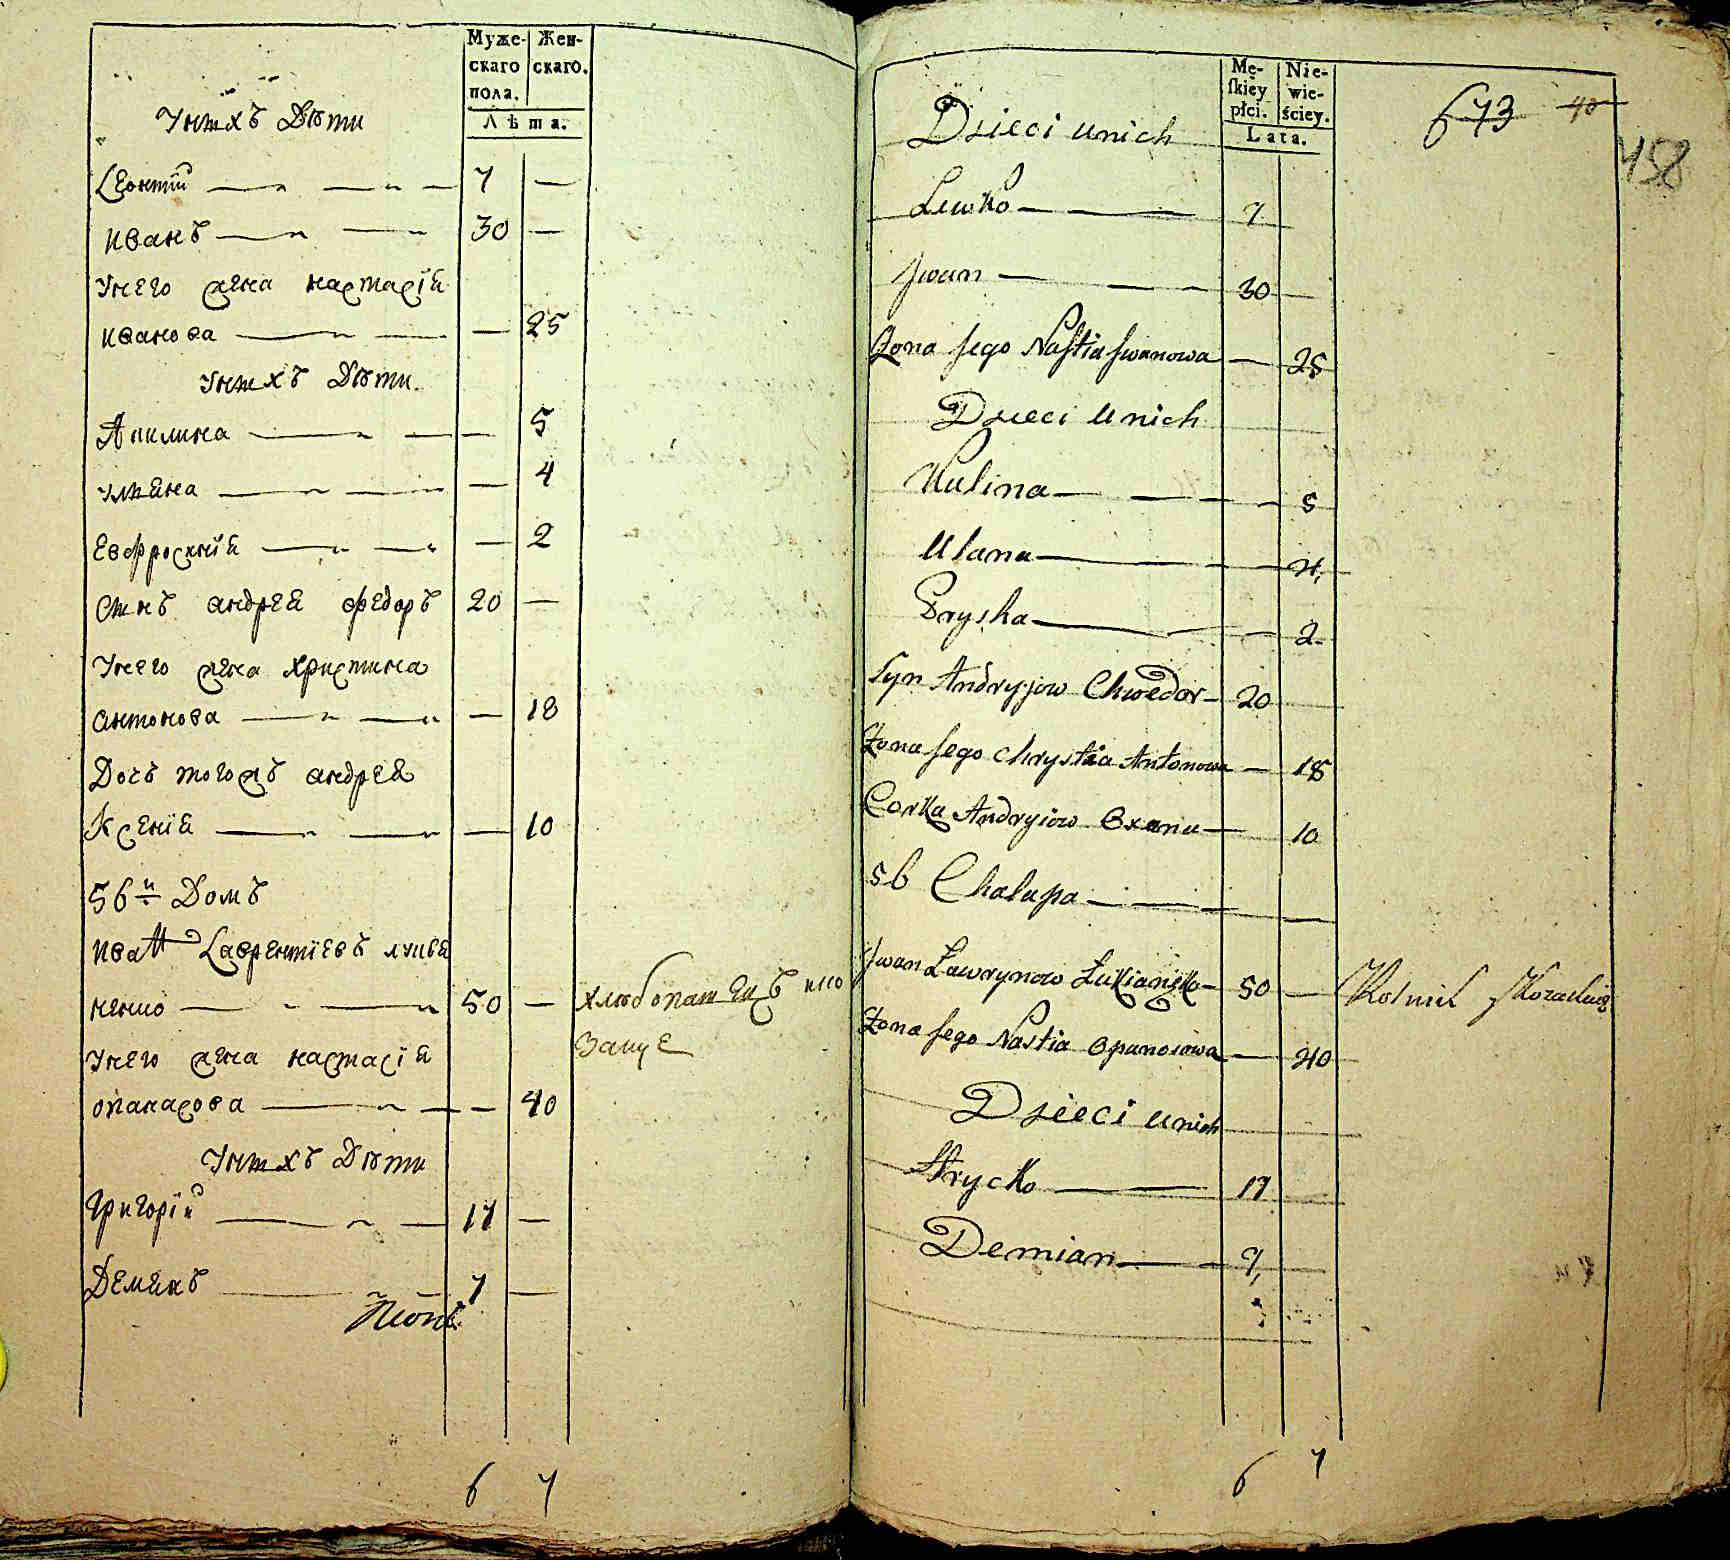 Муже-
скаго
пола.
Жен-
скаго.
Лѣта.
У нихъ Дѣти
Леонтий 7 —
иванъ 30 —
У него жена настасїя
иванова — 25
У нихъ Дѣти.
Акилина — 5
улияна — 4
Евфросинїя — 2
Сынъ андрея федоръ 20 —
У него жена христина
антонова — 18
Дочь тогожъ андрея
Ксенїя — 10
56й Домъ
Иван Лаврентїевъ лукья
ненко 50 — хлѣбопашецъ изъ
У него жена настасїя
опанасова — 40
У нихъ Дѣти
Григорїй 17 —
Демянъ 7 —
6 7
Mę-
ſkiey
płci.
Nie-
wie-
ściey.
Lata.
673 40
458
Dzieci u nich
Lewko 7
Jwan 30 —
Żona Jego Naſtia Jwanowa — 25
Dzieci u nich
Kulina 5
Ulana 4
Pryska 2
Syn Andryjow Chwedor 20
Żona Jego Chrystia Antonowa — 18
Corka Andryiow Oxana — 10
56 Chalupa
Jwan Lawrynow Łukianęko 50 — Rolnik
Żona Jego Nastia Opanosowa — 40
Dzieci u nich
Hrycko 17
Demian 7
6 7